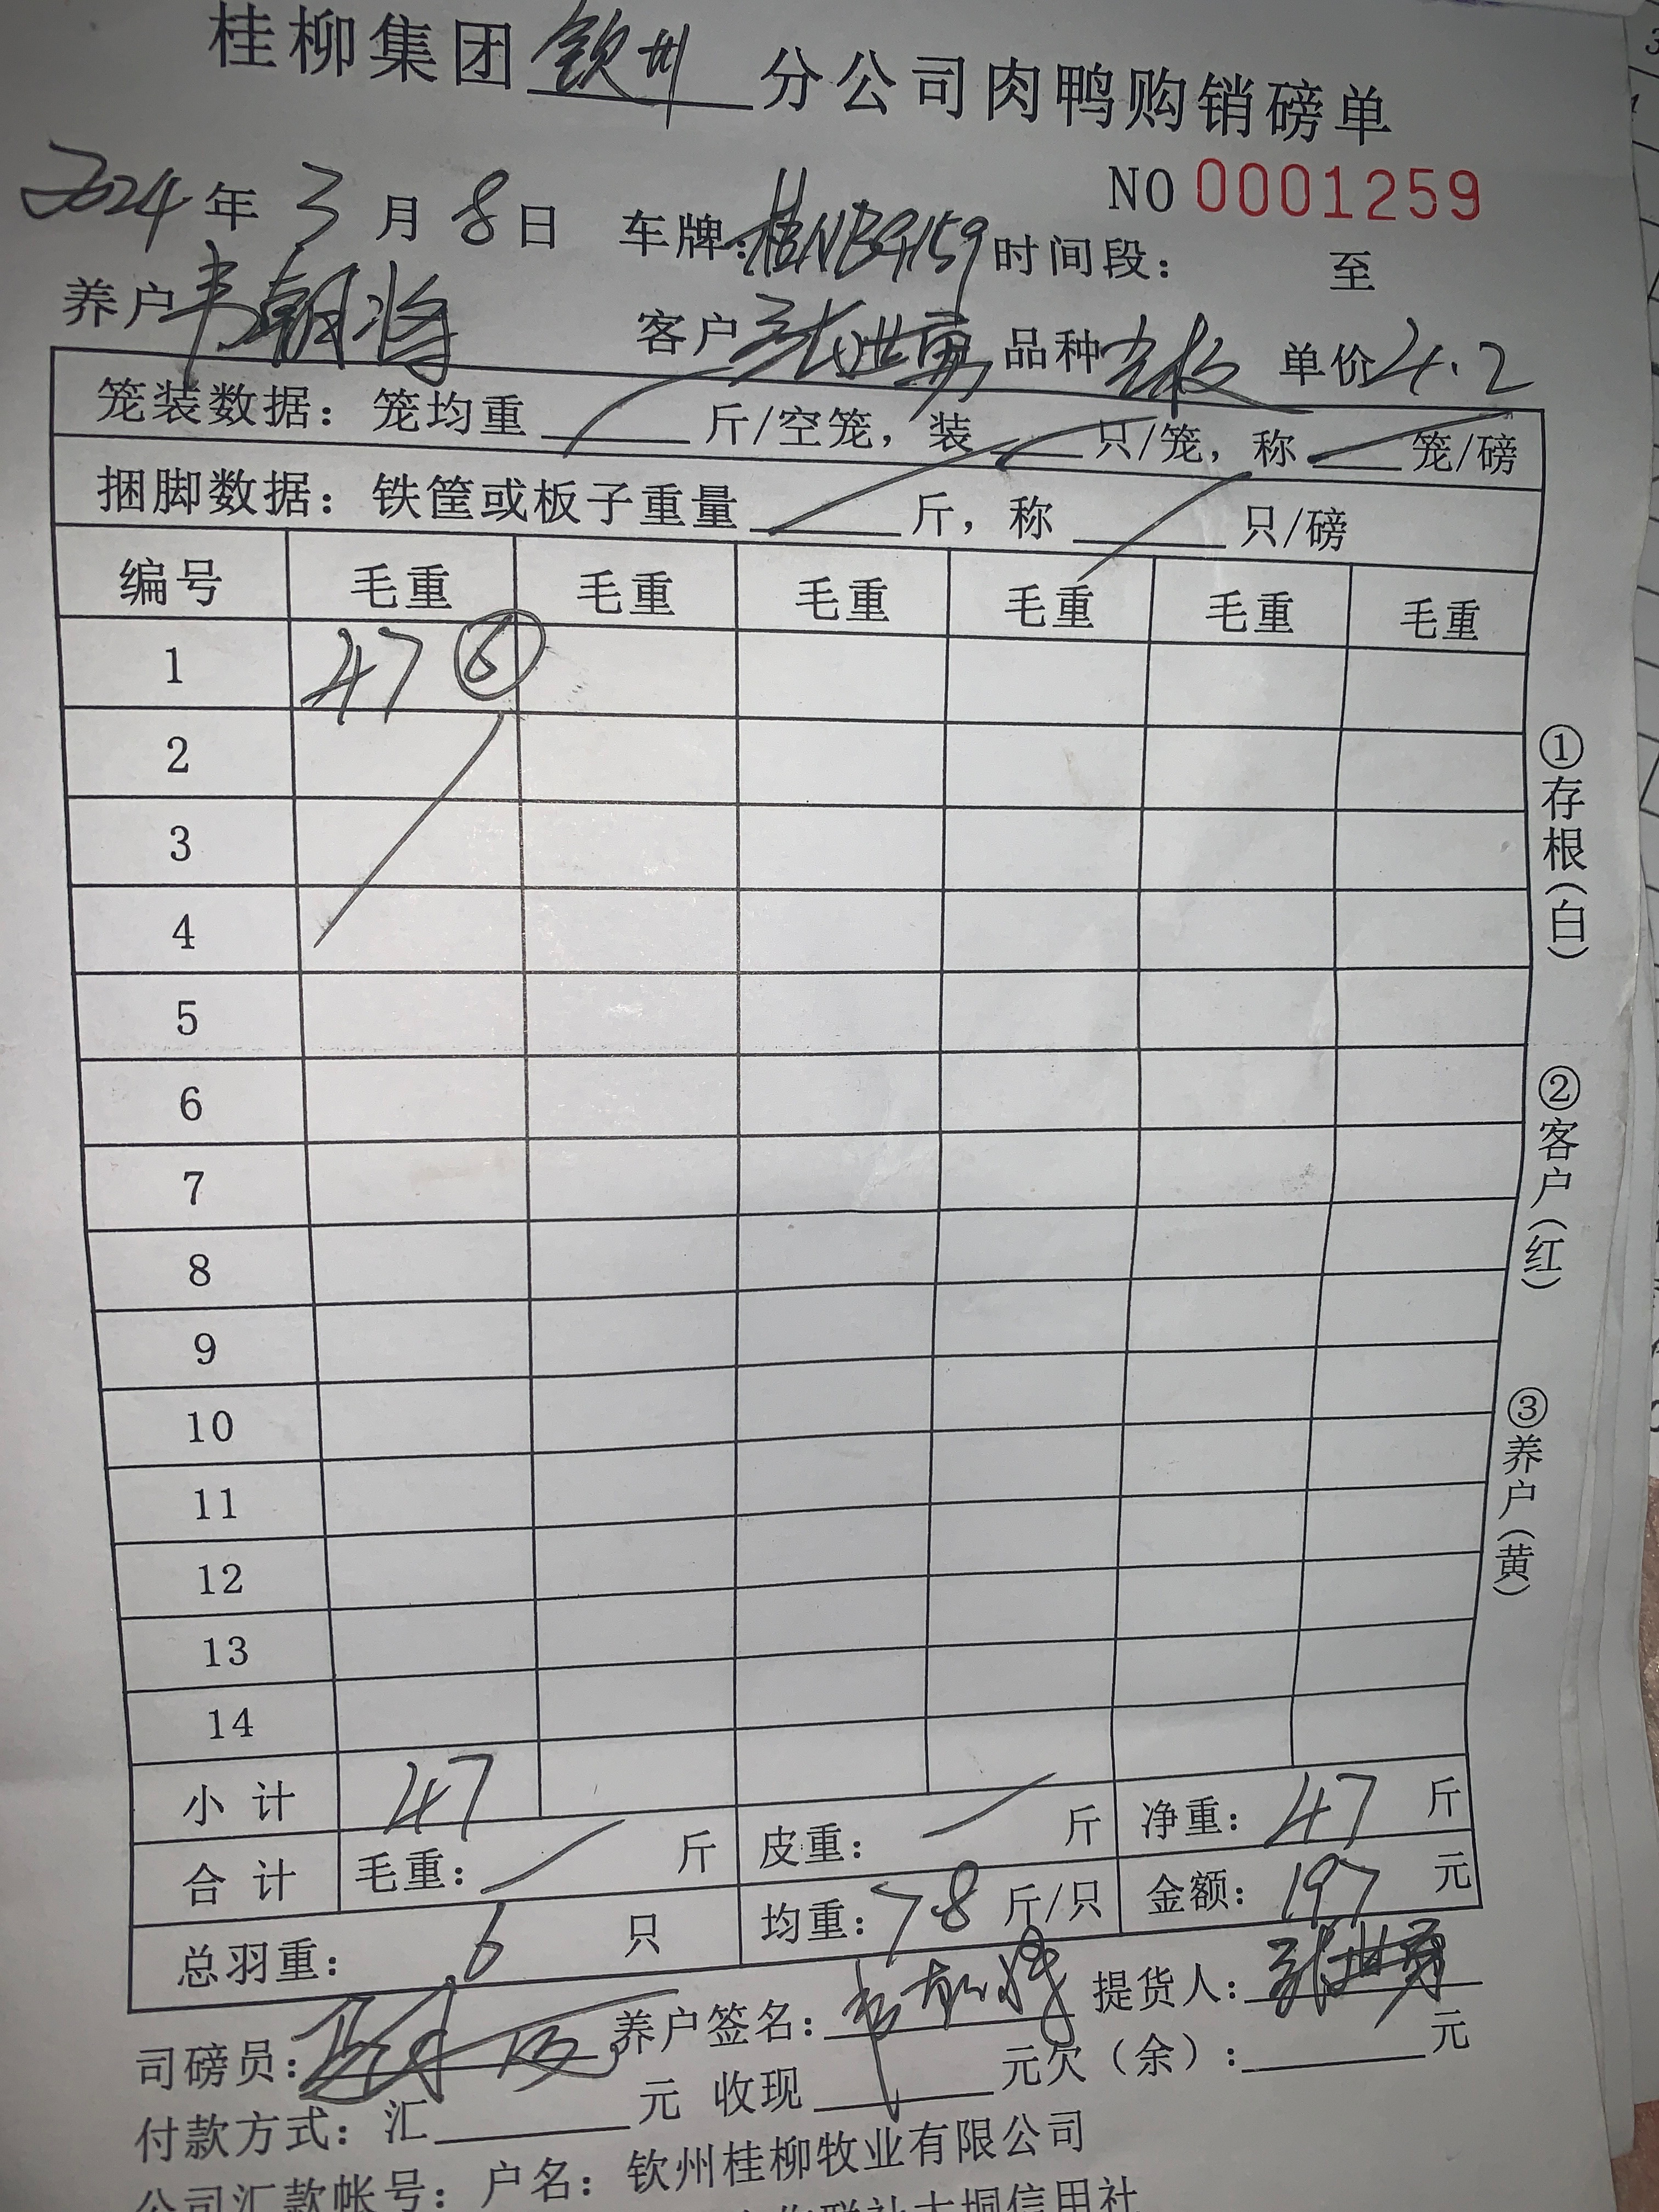 桂柳集团钦州分公司肉鸭购销磅单
NO 0001259
2024年3月8日 车牌:桂NB9159 时间段: 至
养户韦朝将 客户张世勇 品种 单价4.2
笼装数据: 笼均重 斤/空笼, 装 只/笼, 称 笼/磅
捆脚数据: 铁筐或板子重量 斤, 称 只/磅
编号 毛重 毛重 毛重 毛重 毛重 毛重
1 47 ⑥
2
3
4
5
6
7
8
9
10
11
12
13
14
小计 47
合计 毛重: 斤 皮重: 斤 净重: 47 斤
总羽重: 6 只 均重: 7.8 斤/只 金额: 197 元
司磅员: 养户签名: 韦朝将 提货人: 张世勇
付款方式: 汇 元 收现 元欠(余): 元
公司汇款帐号: 户名: 钦州桂柳牧业有限公司
联社大垌信用社
①存根(白)
②客户(红)
③养户(黄)